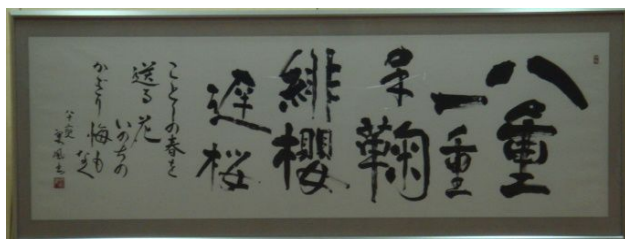 八重
一重
手鞠
緋櫻
遅桜
ことしの春を
送る花
いのちの
かぎり悔も
なく